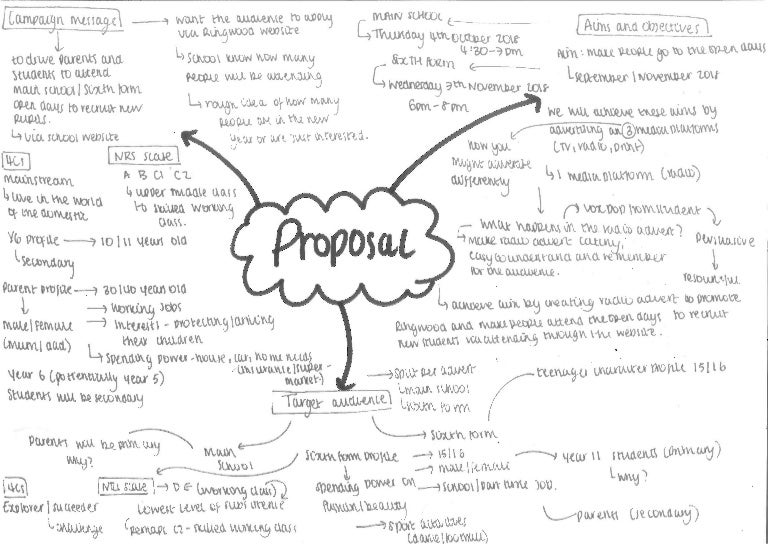 Campaign message
to drive parents and
students to attend
main school/sixth form
open days to recruit new
pupils.
via school website
want the audience to apply
via Ringwood website
school know how many
people will be attending
rough idea of how many
people are in the new
year or are just interested.
MAIN SCHOOL
Thursday 4th October 2018
4:30-7pm
SIXTH FORM
Wednesday 7th November 2018
6pm-8pm
Aims and objectives
Aim: make people go to the open days
September/November 2018
We will achieve these aims by
advertising on 3 media platforms
(TV, radio, print)
1 media platform (radio)
how you
might advertise
differently
vox pop from student
What happens in the radio advert?
make radio advert catchy,
easy to understand and remember
for the audience.
persuasive
resourceful
achieve aim by creating radio advert to promote
Ringwood and make people attend the open days to recruit
new students via attending through the website.
Proposal
4Cs
mainstream
live in the world
of the domestic
NRS scale
A B C1 C2
upper middle class
to skilled working
class.
Y6 profile → 10/11 years old
secondary
Parent profile → 30/40 year old
Working jobs
Interests - protecting/driving
their children
Male/Female
(mum/dad)
Spending power - house, car, home needs
(insurance/super-
market)
Year 6 (potentially year 5)
students will be secondary
Target audience
split per advert
main school
sixth form
teenager character profile 15/16
sixth form
Main
school
Parents will be primary
why?
Sixth form profile
15/16
male/female
school/part time job.
spending power on
fashion/beauty
sport activities
(dance/football)
year 11 students (primary)
why?
parents (secondary)
4Cs
Explorer/succeeder
challenge
NRS scale → D E (working class)
lowest level of subsistence
Perhaps C2 - skilled working class